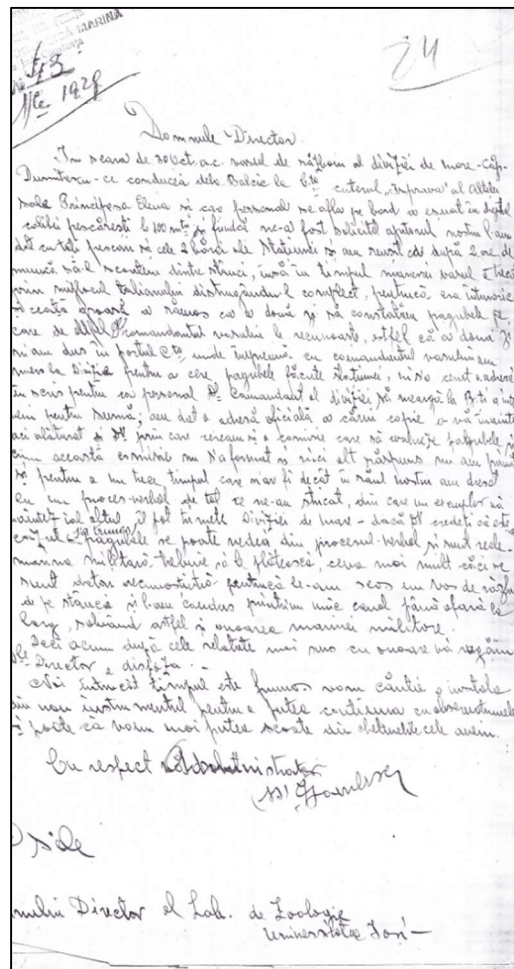 MARINA
24
1929
Domnule Director
In seara de 30 Oct a.c. vasul de război al diviziei de mare - Căp.
Dumitrescu - ce conducea dela Balcic la Cța cuterul "Isprava" al Alteței
Sale Principesa Elena si care personal se afla pe bord a esuat in dreptul
colibei pescărești la 100 mtr și fiindcă ne-a fost solicitat ajutorul nostru l-am
dat cu toți pescarii si cele 2 bărci ale Stațiunei si am reusit că după 2 ore de
muncă să-l scoatem dintre stânci, însă in timpul manevrei vasul a trecut
prin mijlocul talianului distrugându-l complect, pentrucă era intuneric
si ceață groasă a rămas ca a doua zi să constatăm pagubele pe
care de altfel Dl Comandantul vasului le recunoaste, astfel că a doua zi
m-am dus în portul Cța unde împreună cu comandantul vasului am
mers la Divizie pentru a cere pagubele făcute stațiunei, ni s-a cerut adresă
in scris pentru ca personal Dl Comandant al diviziei să meargă la B-ti a
pentru sumă; am dat o adresă oficială a cărei copie v-o
aci alăturat si prin care ceream si o comisie care să evalueze pagubele și
cum această comisie nu s-a format și nici alt răspuns nu am primit
și pentru a nu trece timpul care n-ar fi decât în răul nostru am dresat
eu un proces-verbal de tot ce ne-au stricat, din care un exemplar vă
iar altul îl pot trimete Diviziei de Mare - dacă Dl credeți că este
pagubele se poate vedea din procesul-verbal și sunt reale
marina militară trebuie să le plătească, ceva mai mult căci ne
sunt datori recunostință pentrucă le-am scos un vas de război
de pe stâncă și l-am condus printr'un mic canal până afară la
larg, salvând astfel și onoarea marinei militare.
Deci acum după cele relatate mai sus cu onoare vă rugăm
Dle Director a dispoza.
Noi întrucât timpul este frumos vom căuta a instala
din nou instrumentul pentru a putea continua cu observațiunile
poate că vom mai putea scoate din cheltuelile cele avem.
Cu respect Administrator
Dsale
Domnului Director al Lab. de Zoologie
Universitatea Iași